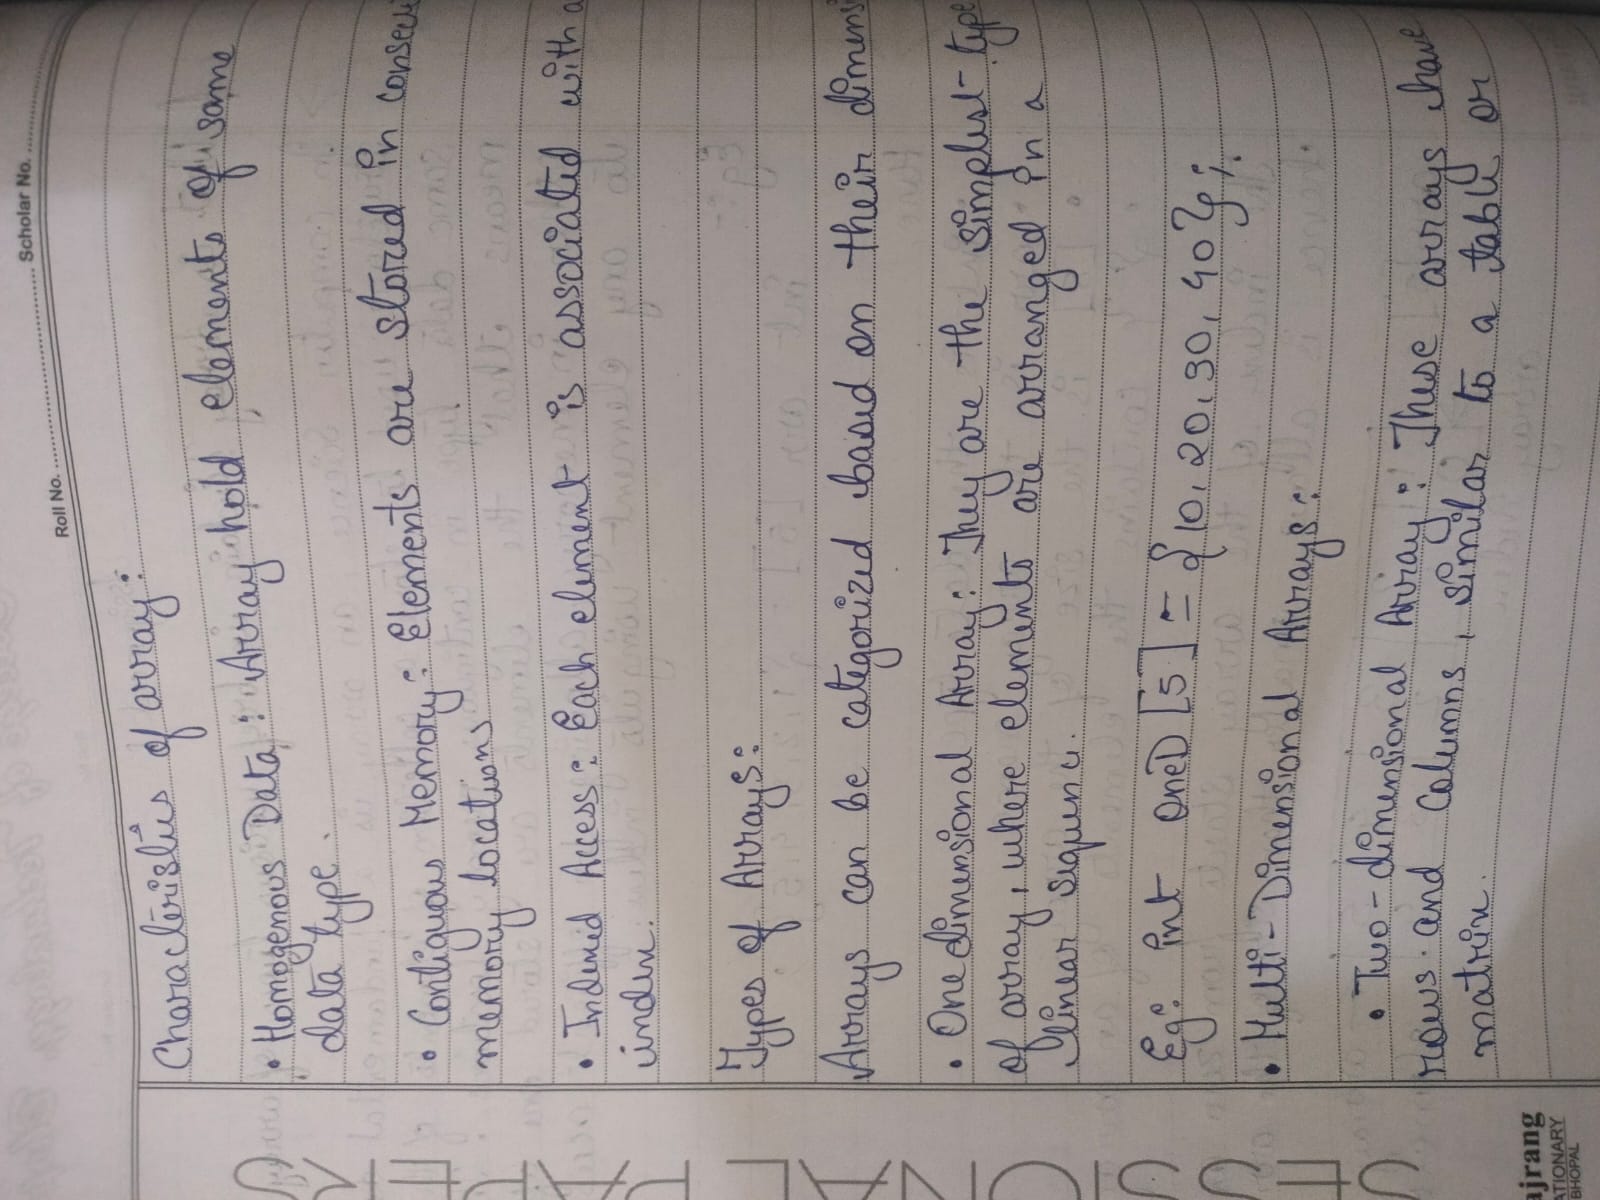 Scholar No. ....................
Roll No. ....................
Characteristics of array:
• Homogenous Data : Array hold elements of same
data type.
• Contiguous Memory: Elements are stored in consecu
memory locations
• Indexed Access: Each element is associated with a
index.
Types of Arrays:
Arrays can be categorized based on their dimens
• One dimensional Array: They are the simplest type
of array, where elements are arranged in a
linear sequence.
Eg: int oneD [5] = {10, 20, 30, 40};
• Multi-Dimensional Arrays:
• Two-dimensional Array: These arrays have
rows and columns, similar to a table or
matrix.
SESSIONAL PAPERS
ajrang
ATIONARY
BHOPAL